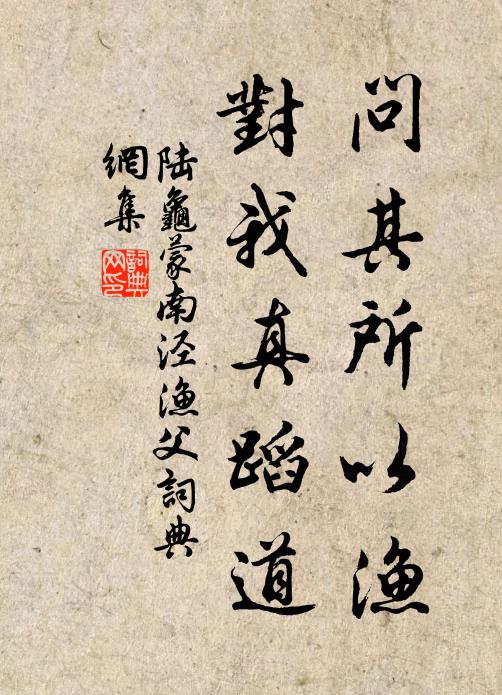 問其所以渔
對我真蹈道
陆龜蒙南泾渔父詞典
網集
詞典
网印